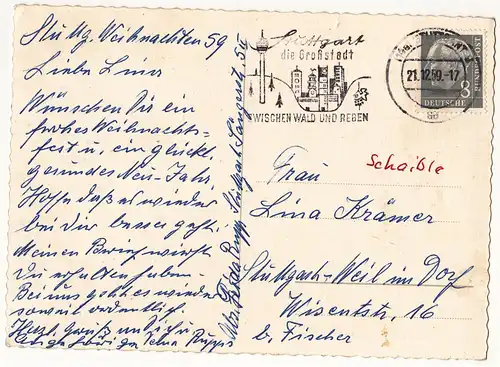 Stuttg. Weihnachten 59
Liebe Lina
Wünschen Dir ein
frohes Weihnachts-
fest u. ein glückl.
gesundes Neu-Jahr
Hoffe daß es wieder
bei Dir besser geht.
Meinen Brief wirst
Du erhalten haben.
Bei uns geht es wieder
soweit ordentlich.
Herzl. Gruß an Dich u.
Angehörigen
Stuttgart
die Großstadt
ZWISCHEN WALD UND REBEN
21.12.59.-17
8
DEUTSCHE
BUNDESPOST
Schaible
Frau
Lina Krämer
Stuttgart-Weil im Dorf
Wisentstr. 16
b. Fischer